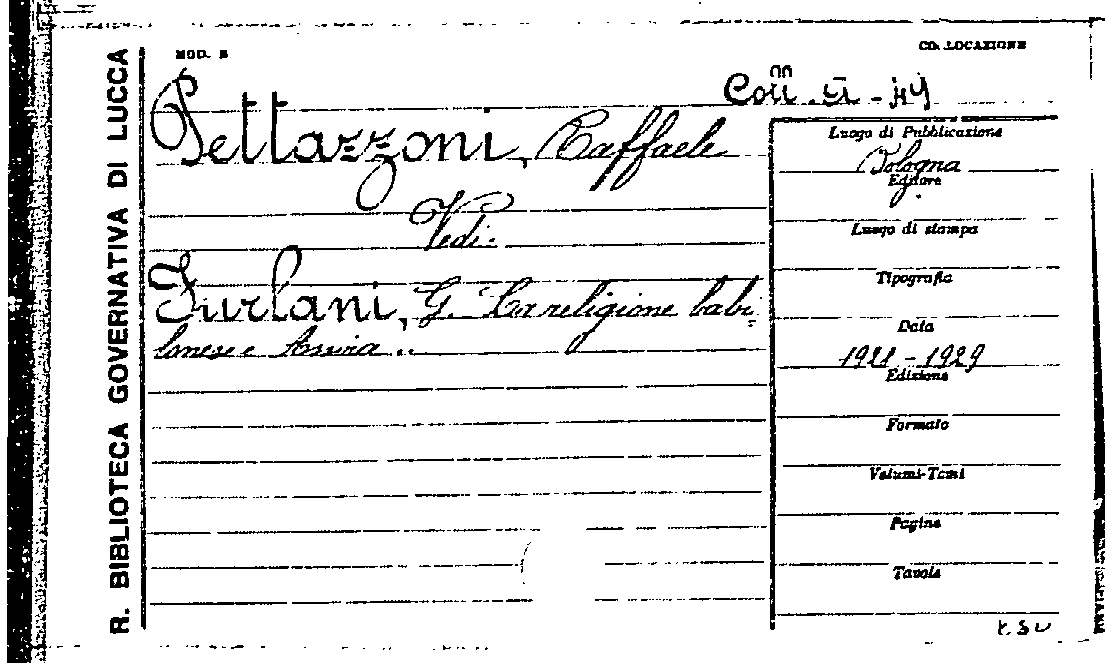 R. BIBLIOTECA GOVERNATIVA DI LUCCA
MOD. B
COLLOCAZIONE
Pettazzoni, Raffaele
Vedi:
Furlani, G. La religione babi=
lonese e Assira ..
Luogo di Pubblicazione
Bologna
Editore
Luogo di stampa
Tipografia
Data
1928 - 1929
Edizione
Formato
Volumi-Tomi
Pagine
Tavole